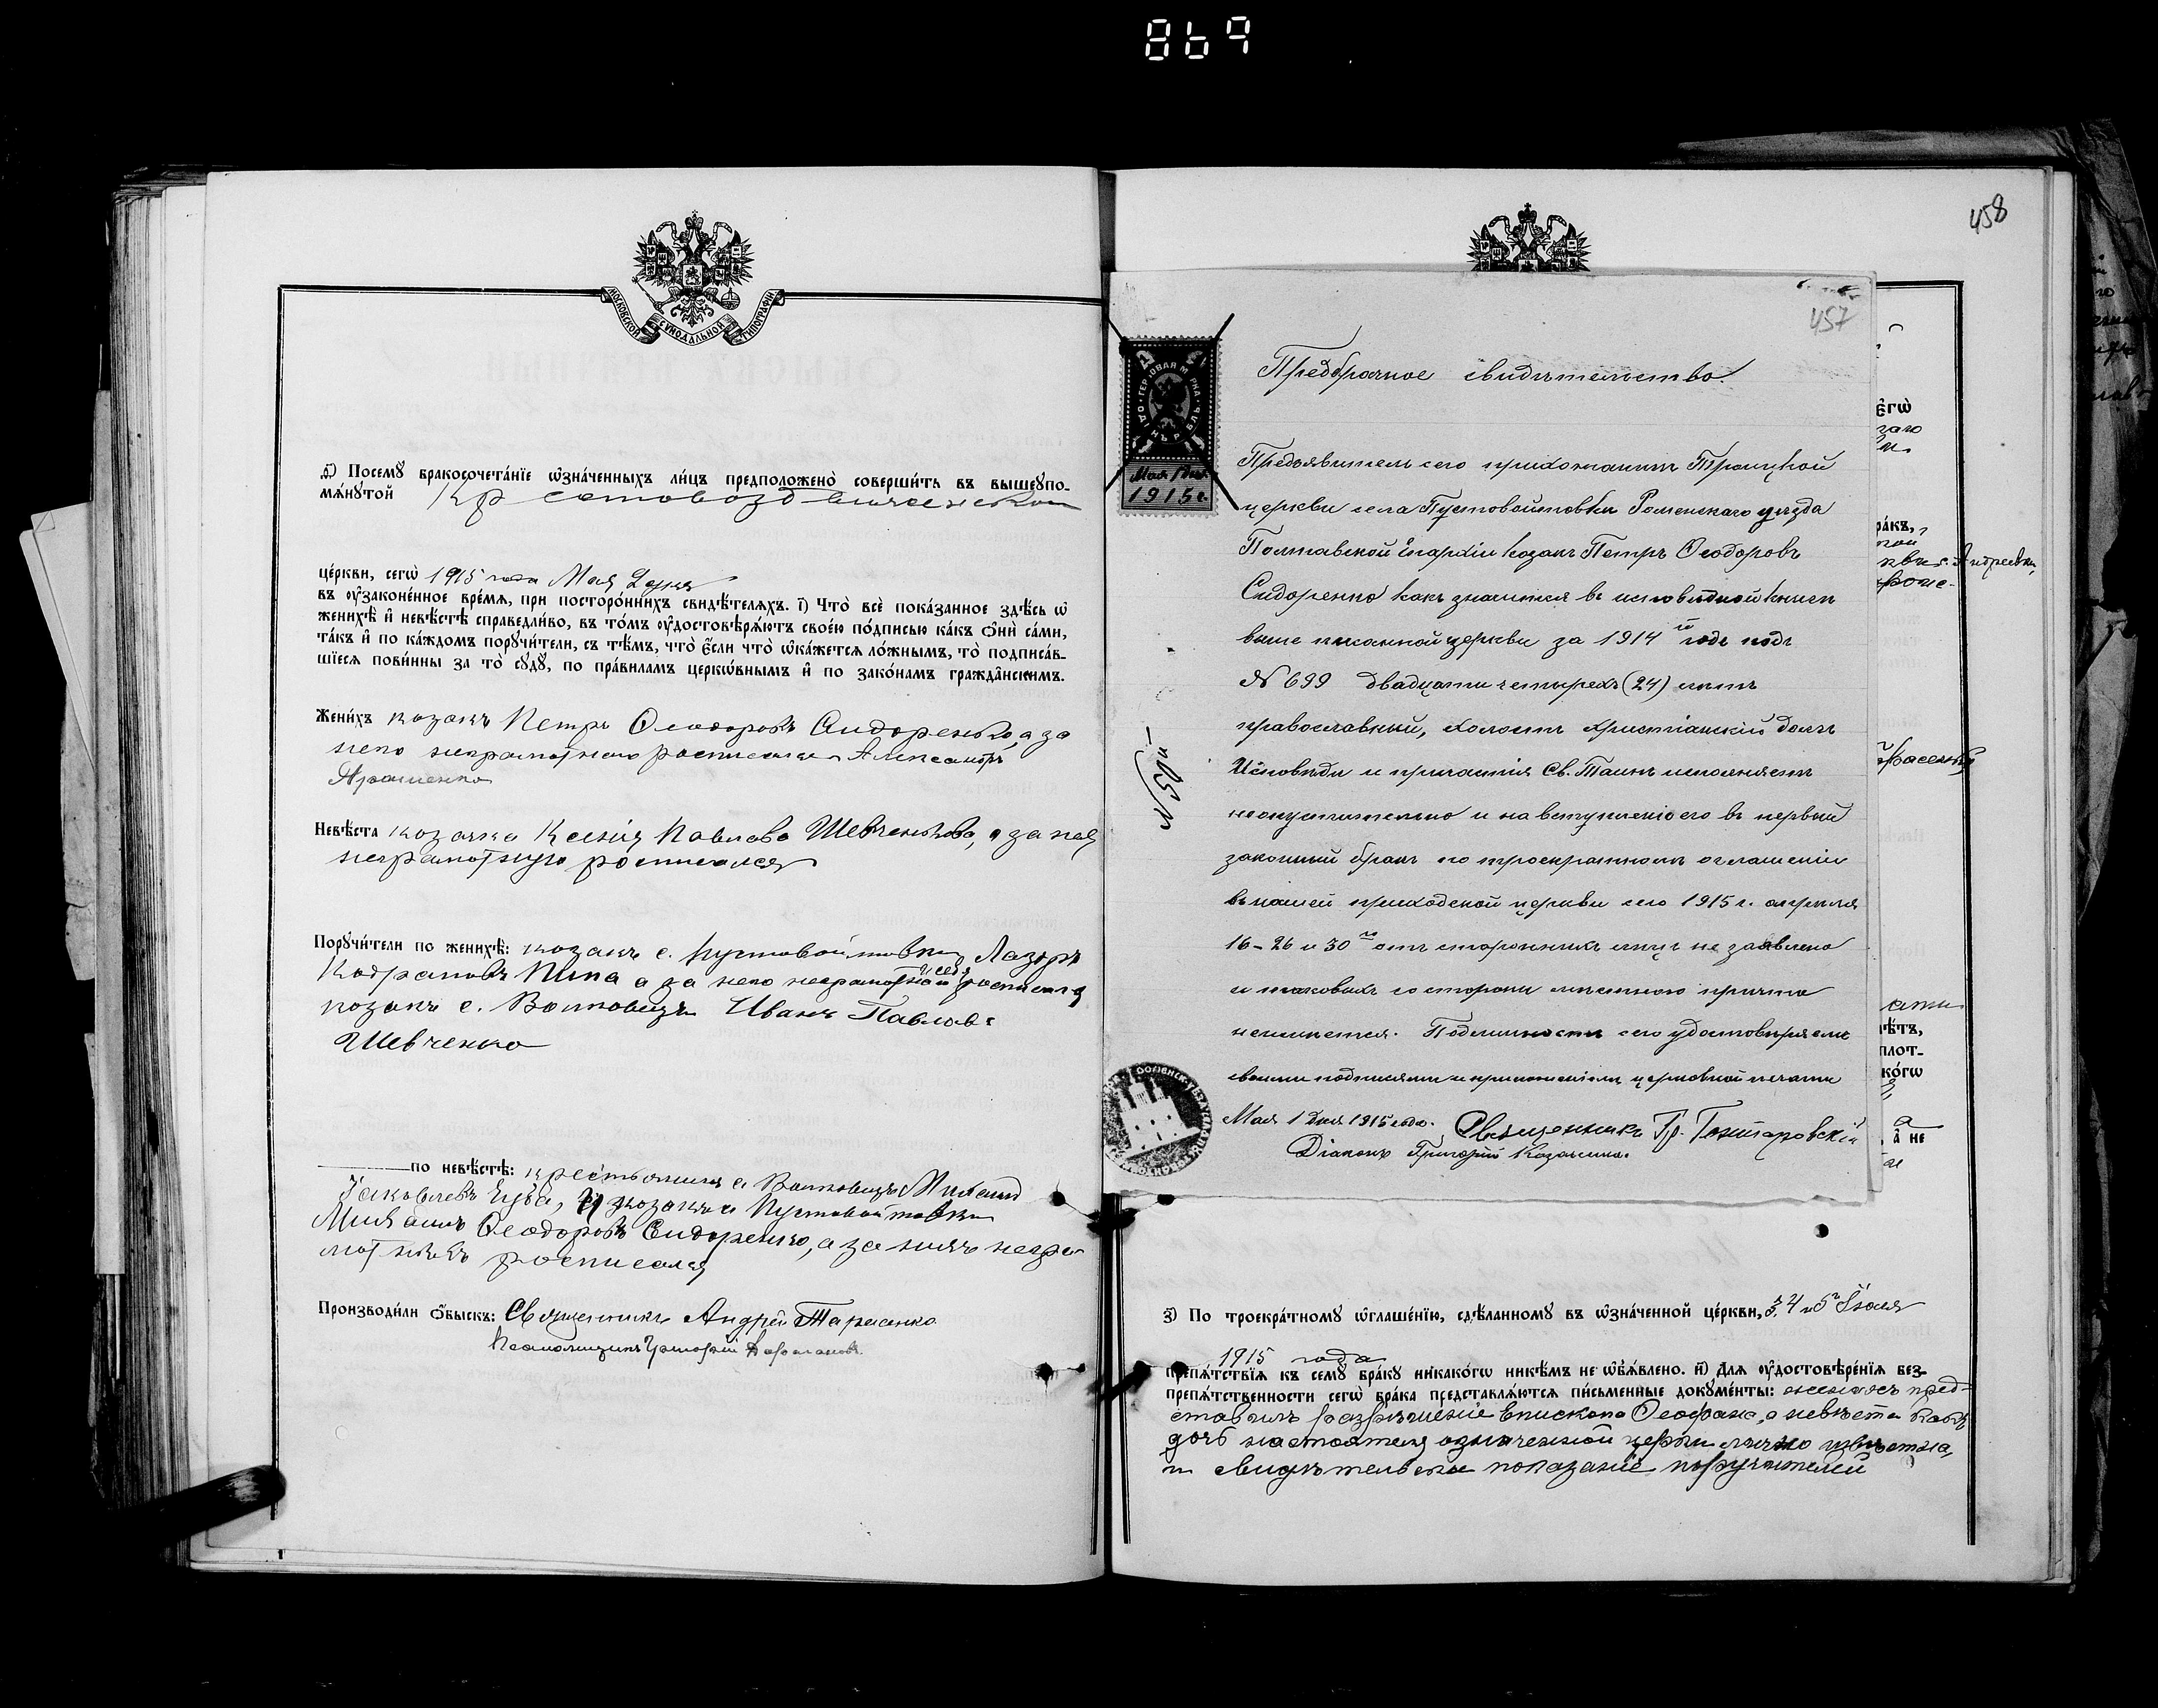 869
МОСКОВСКОЙ СУНОДАЛЬНОЙ ТИПОГРАФІИ
Ѳ) Посемꙋ бракосочета́нїе ѡ҆зна́ченныхъ ли́цъ предположено̀ соверши́ть въ вышеꙋпо-
мѧ́нꙋтой Крестовоздвиженской
це́ркви, сегѡ̀ 1915 года Мая 2 дня
въ ᲂу҆законе́нное вре́мѧ, при посторо́ннихъ свидѣ́телѧхъ. і҃) Что̀ всѐ пока́занное здѣ́сь ѡ҆
женихѣ̀ и҆ невѣ́стѣ справедли́во, въ то́мъ ᲂу҆достовѣрѧ́ютъ свое́ю по́дписью ка́къ ѻ҆нѝ са́ми,
та́къ и҆ по ка́ждомъ порꙋчи́тели, съ тѣ́мъ, что̀ є҆́сли что̀ ѡ҆ка́жетсѧ ло́жнымъ, то̀ подписа́в-
шїесѧ пови́нны за то̀ сꙋдꙋ̀, по пра́виламъ церко́внымъ и҆ по зако́намъ гражда́нскимъ.
Жени́хъ козакъ Петръ Ѳеодоровъ Сидоренко, а за
него неграмотнаго росписался Александръ
Невѣ́ста козачка Ксенія Павлова Шевченкова, а за нея
неграмотную росписался
Порꙋчи́тели по женихѣ̀: козакъ с. Пустовойтовки Лазарь
Кодратовъ Липа а за него неграмотнаго росписался
козакъ с. Волковецъ Иванъ Павловъ
Шевченко
по невѣ́стѣ: крестьянинъ с. Волковецъ Михаилъ
Яковлевъ, и козакъ с. Пустовойтовки
Михаилъ Ѳеодоровъ Сидоренко, а за нихъ негра-
мотныхъ росписался
Производи́ли ѻ҆́быскъ: Священникъ Андрей Тарасенко
Псаломщикъ Григорій
458
457
Предбрачное свидѣтельство.
Мая 1 дня
1915 г.
Предъявитель сего прихожанинъ Троицкой
церкви села Пустовойтовки Роменскаго уѣзда
Полтавской Епархіи козакъ Петръ Ѳеодоровъ
Сидоренко какъ значится въ исповѣдной книгѣ
выше писанной церкви за 1914й годъ подъ
№ 699 двадцати четырехъ (24) лѣтъ
православный, холостъ христіанскій долгъ
Исповѣди и причастія Св. Таинъ исполняетъ
неопустительно и на вступленіе его въ первый
законный бракъ по троекратномъ оглашеніи
въ нашей приходской церкви сего 1915 г. апрѣля
16 – 26 и 30го отъ стороннихъ лицъ не заявлено
и таковыхъ со стороны мѣстнаго причта
неимѣется. Подлинность сего удостовѣряемъ
своими подписями и приложеніемъ церковной печати
Мая 1 дня 1915 года. Священникъ Гр.
Діаконъ Григорій
є҆гѡ̀
ра́къ,
с. Андреевки,
лѣ́тъ,
плот-
ко́гѡ
а҆ не
з҃) По троекра́тномꙋ ѡ҆глаше́нїю, сдѣ́ланномꙋ въ ѡ҆зна́ченной це́ркви, 3, 4 и 5го
1915 года
препѧ́тствїѧ къ семꙋ̀ бра́кꙋ никако́гѡ никѣ́мъ не ѡ҆б̾ѧ́влено. и҃) Длѧ ᲂу҆достовѣре́нїѧ без-
препѧ́тственности сегѡ̀ бра́ка представлѧ́ютсѧ пи́сьменные докꙋме́нты: женихъ пред-
ставилъ разрѣшеніе Епископа Ѳеофана, а невѣста какъ
дочь настоятеля означенной церкви лично извѣстна,
и свидѣтельское показаніе поручителей